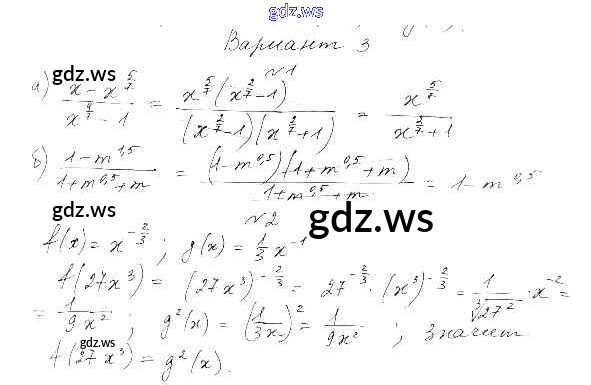 gdz.ws
Вариант 3
№1
а) (x - x^(5/7)) / (x^(4/7) - 1) = (x^(5/7)(x^(2/7) - 1)) / ((x^(2/7) - 1)(x^(2/7) + 1)) = x^(5/7) / (x^(2/7) + 1)
gdz.ws
б) (1 - m^1,5) / (1 + m^0,5 + m) = ((1 - m^0,5)(1 + m^0,5 + m)) / (1 + m^0,5 + m) = 1 - m^0,5
gdz.ws
№2
gdz.ws
f(x) = x^(-2/3); g(x) = 1/3 x^-1
f(27x^3) = (27x^3)^(-2/3) = 27^(-2/3) · (x^3)^(-2/3) = 1/∛(27^2) · x^-2 =
= 1/(9x^2); g^2(x) = (1/(3x))^2 = 1/(9x^2); значит
gdz.ws
f(27x^3) = g^2(x).
gdz.ws